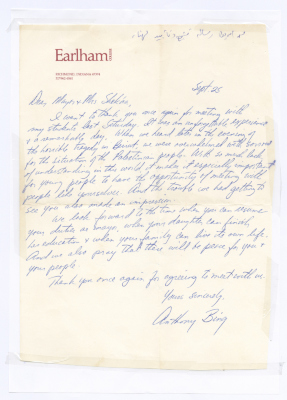 Earlham
Sept 25
Dear Mayor & Mrs Shakaa,
I want to thank you once again for meeting with
my students last Saturday. It was an unforgettable experience
& a remarkable day. When we heard later in the evening of
the horrible tragedy in Beirut we were overwhelmed with sorrow
for the situation of the Palestinian people. With so much lack
of understanding in the world, I find it especially important
for young people to have the opportunity of meeting with
people like yourselves. And the trouble we had getting to
see you also made an impression.
We look forward to the time when you can resume
your duties as mayor, when your daughter can finish
her education & when your family can live its own life.
And we also pray that there will be peace for you &
your people.
Thank you once again for agreeing to meet with us.
Yours sincerely,
Anthony Bing